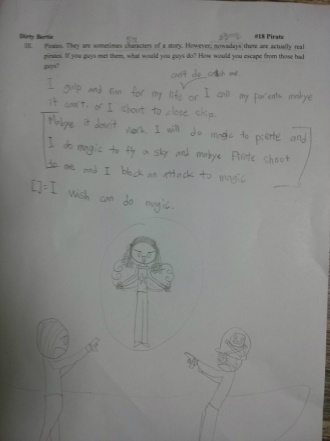 Dirty Bertie #18 Pirate
Pirates. They are sometimes characters of a story. However, nowadays there are actually real
pirates. If you guys met them, what would you guys do? How would you escape from those bad
guys?
can't do
I gulp and run for my life or I call my parents mabye
it can't. or I shout to close ship.
Mabye it doesn't work I will do magic to pirate and
I do magic to fly a sky and mabye Pirate shoot
to me and I block an attack to magic
[ ] = I wish can do magic.